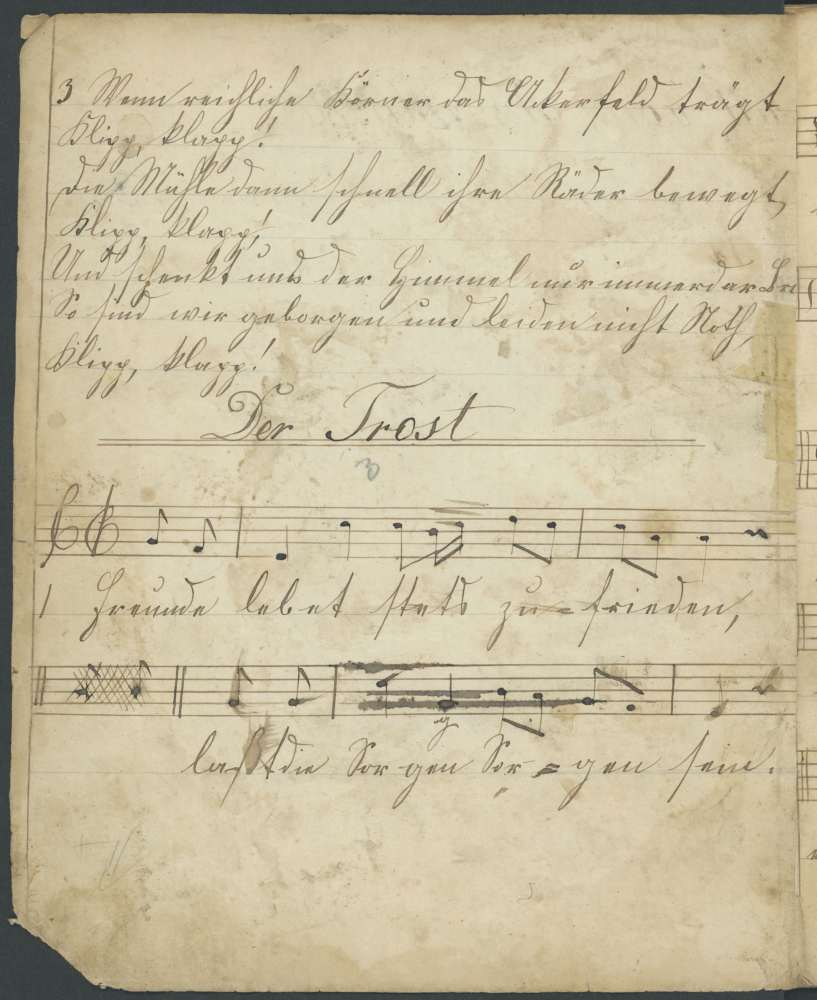 3 Wenn reichliche Körner das Ackerfeld trägt
Klipp, klapp!
Die Mühle dann schnell ihre Räder bewegt,
Klipp, klapp!
Und schenkt uns der Himmel nur immerdar
So sind wir geborgen und leiden nicht Noth,
Klipp, klapp!
Der Trost
3
1 Freunde lebet stets zu=frieden,
g
laßt die Sor gen Sor=gen sein.